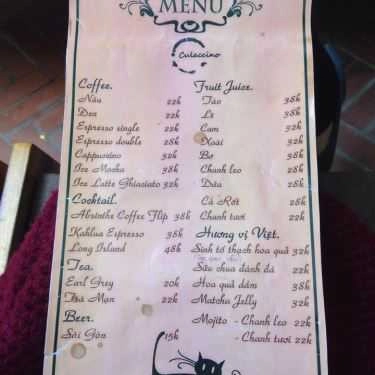 MENU
Culaccino
Coffee.
Nâu 22k
Đen 22k
Espresso single 22k
Espresso double 28k
Cappuccino 32k
Ice Mocha 38k
Ice Latte Ghiaciato 32k
Cocktail.
Absinthe Coffee Flip 38k
Kahlua Espresso 38k
Long Island 48k
Tea.
Earl Grey 20k
Trà Mạn 22k
Beer.
Sài Gòn 15k
Fruit Juice.
Táo 38k
Lê 38k
Cam 32k
Xoài 32k
Bơ 38k
Chanh leo 28k
Dứa 28k
Cà Rốt 28k
Chanh tươi 22k
Hương vị Việt.
Sinh tố thạch hoa quả 32k
Sữa chua đánh đá 22k
Hoa quả dầm 38k
Matcha Jelly 32k
Mojito - Chanh leo 22k
- Chanh tươi 22k